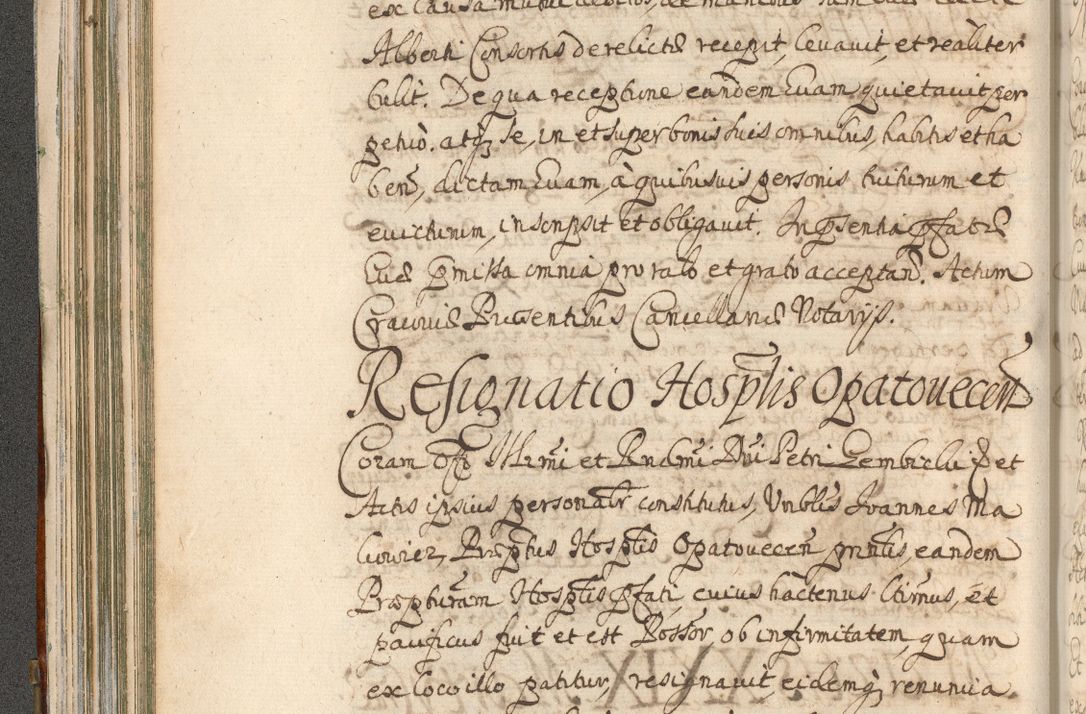 Alberti Consortis derelictæ recepit, levavit, et realiter
tulit. De qua receptione eandem Evam quietavit per
petuo. atq3 se, in et super bonis suis omnibus, habitis et ha
ben̄, dictam Evam, à quibusvis personis tuiturum et
evicturum, inscripsit et obligavit. In p̄sentia p̄fatæ
Evæ p̄missa omnia pro rato et grato acceptan̄. Actum
Cracoviæ Præsentibus Cancellariæ Notarijs.
Resignatio Hosp̄lis Opatovecen̄
Coram Offō Illrmi et Rndmi Dn̄i Petri Gembicki et
Actis ipsius personalr̄ constitutus, Vnblis Joannes Ma
Præp̄tus Hosp̄lis Opatovecen̄ p̄ntis, eandem
Præp̄turam Hosp̄lis p̄fati, cuius hactenus l̄timus, et
pacificus fuit et est Possor̄, ob infirmitatem, quam
ex loco illo patitur, resignavit, eidemq3 renuncia